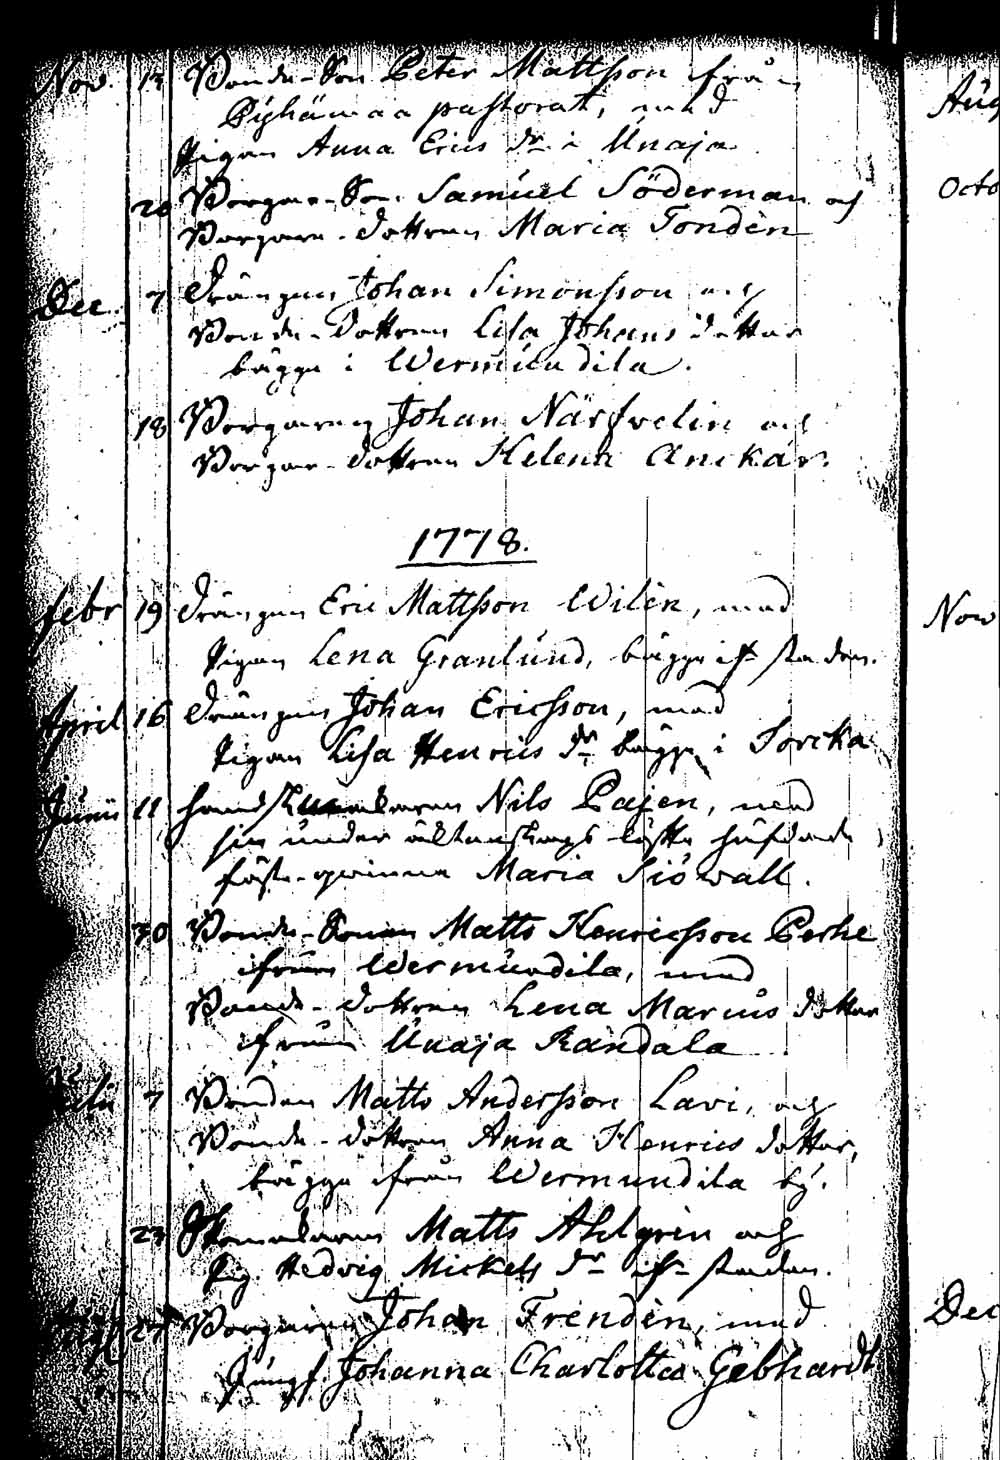 Nov. 13 Bonde-Son Peter Mattsson från
Pyhämaa pastorat, med
Pigan Anna Erics dr i Unaja
20 Borgare-Son Samuel Söderman och
Borgare-dottren Maria Tondèn
Dec 7 Drängen Johan Simonsson och
Bonde-dottren Lisa Johans dotter
bägge i Wermundila.
18 Borgaren Johan Närfvelin och
Borgare-dottren Helena Anckar.
1778.
Febr 19 Drängen Eric Mattsson Wilèn, med
Pigan Lena Granlund, bägge ifr staden.
April 16 Drängen Johan Ericsson, med
Pigan Lisa Henrics dr bägge i Sorcka
Junii 11 Nils Pajen, med
sin under äktenskaps löfte häfdade
fäste-qvinna Maria Siöwall.
30 Bonde-Sonen Matts Henricsson Perhe
ifrån Wermundila, med
Bonde-dottren Lena Marcus dotter
ifrån Unaja Randala
7 Bonden Matts Andersson Lavi, och
Bonde-dottren Anna Henrics dotter,
bägge ifrån Wermundila by.
23 Skomakaren Matts Ahlgrèn och
Pig. Hedvig Mickels dr ifr staden.
27 Borgaren Johan Frendèn, med
Jungf. Johanna Charlotta Gebhardt
Aug
Octo
Nov
Dec